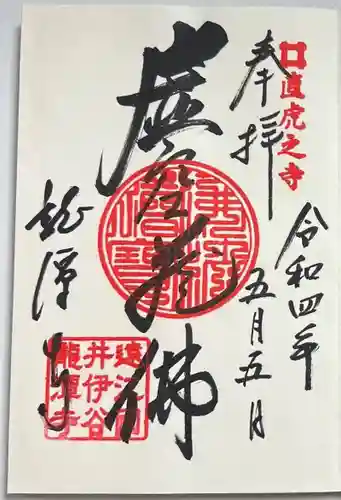 直虎之寺
奉拝
令和四年
五月五日
虚空蔵佛
佛法僧寶
龍潭寺
遠江国
井伊谷
龍潭寺